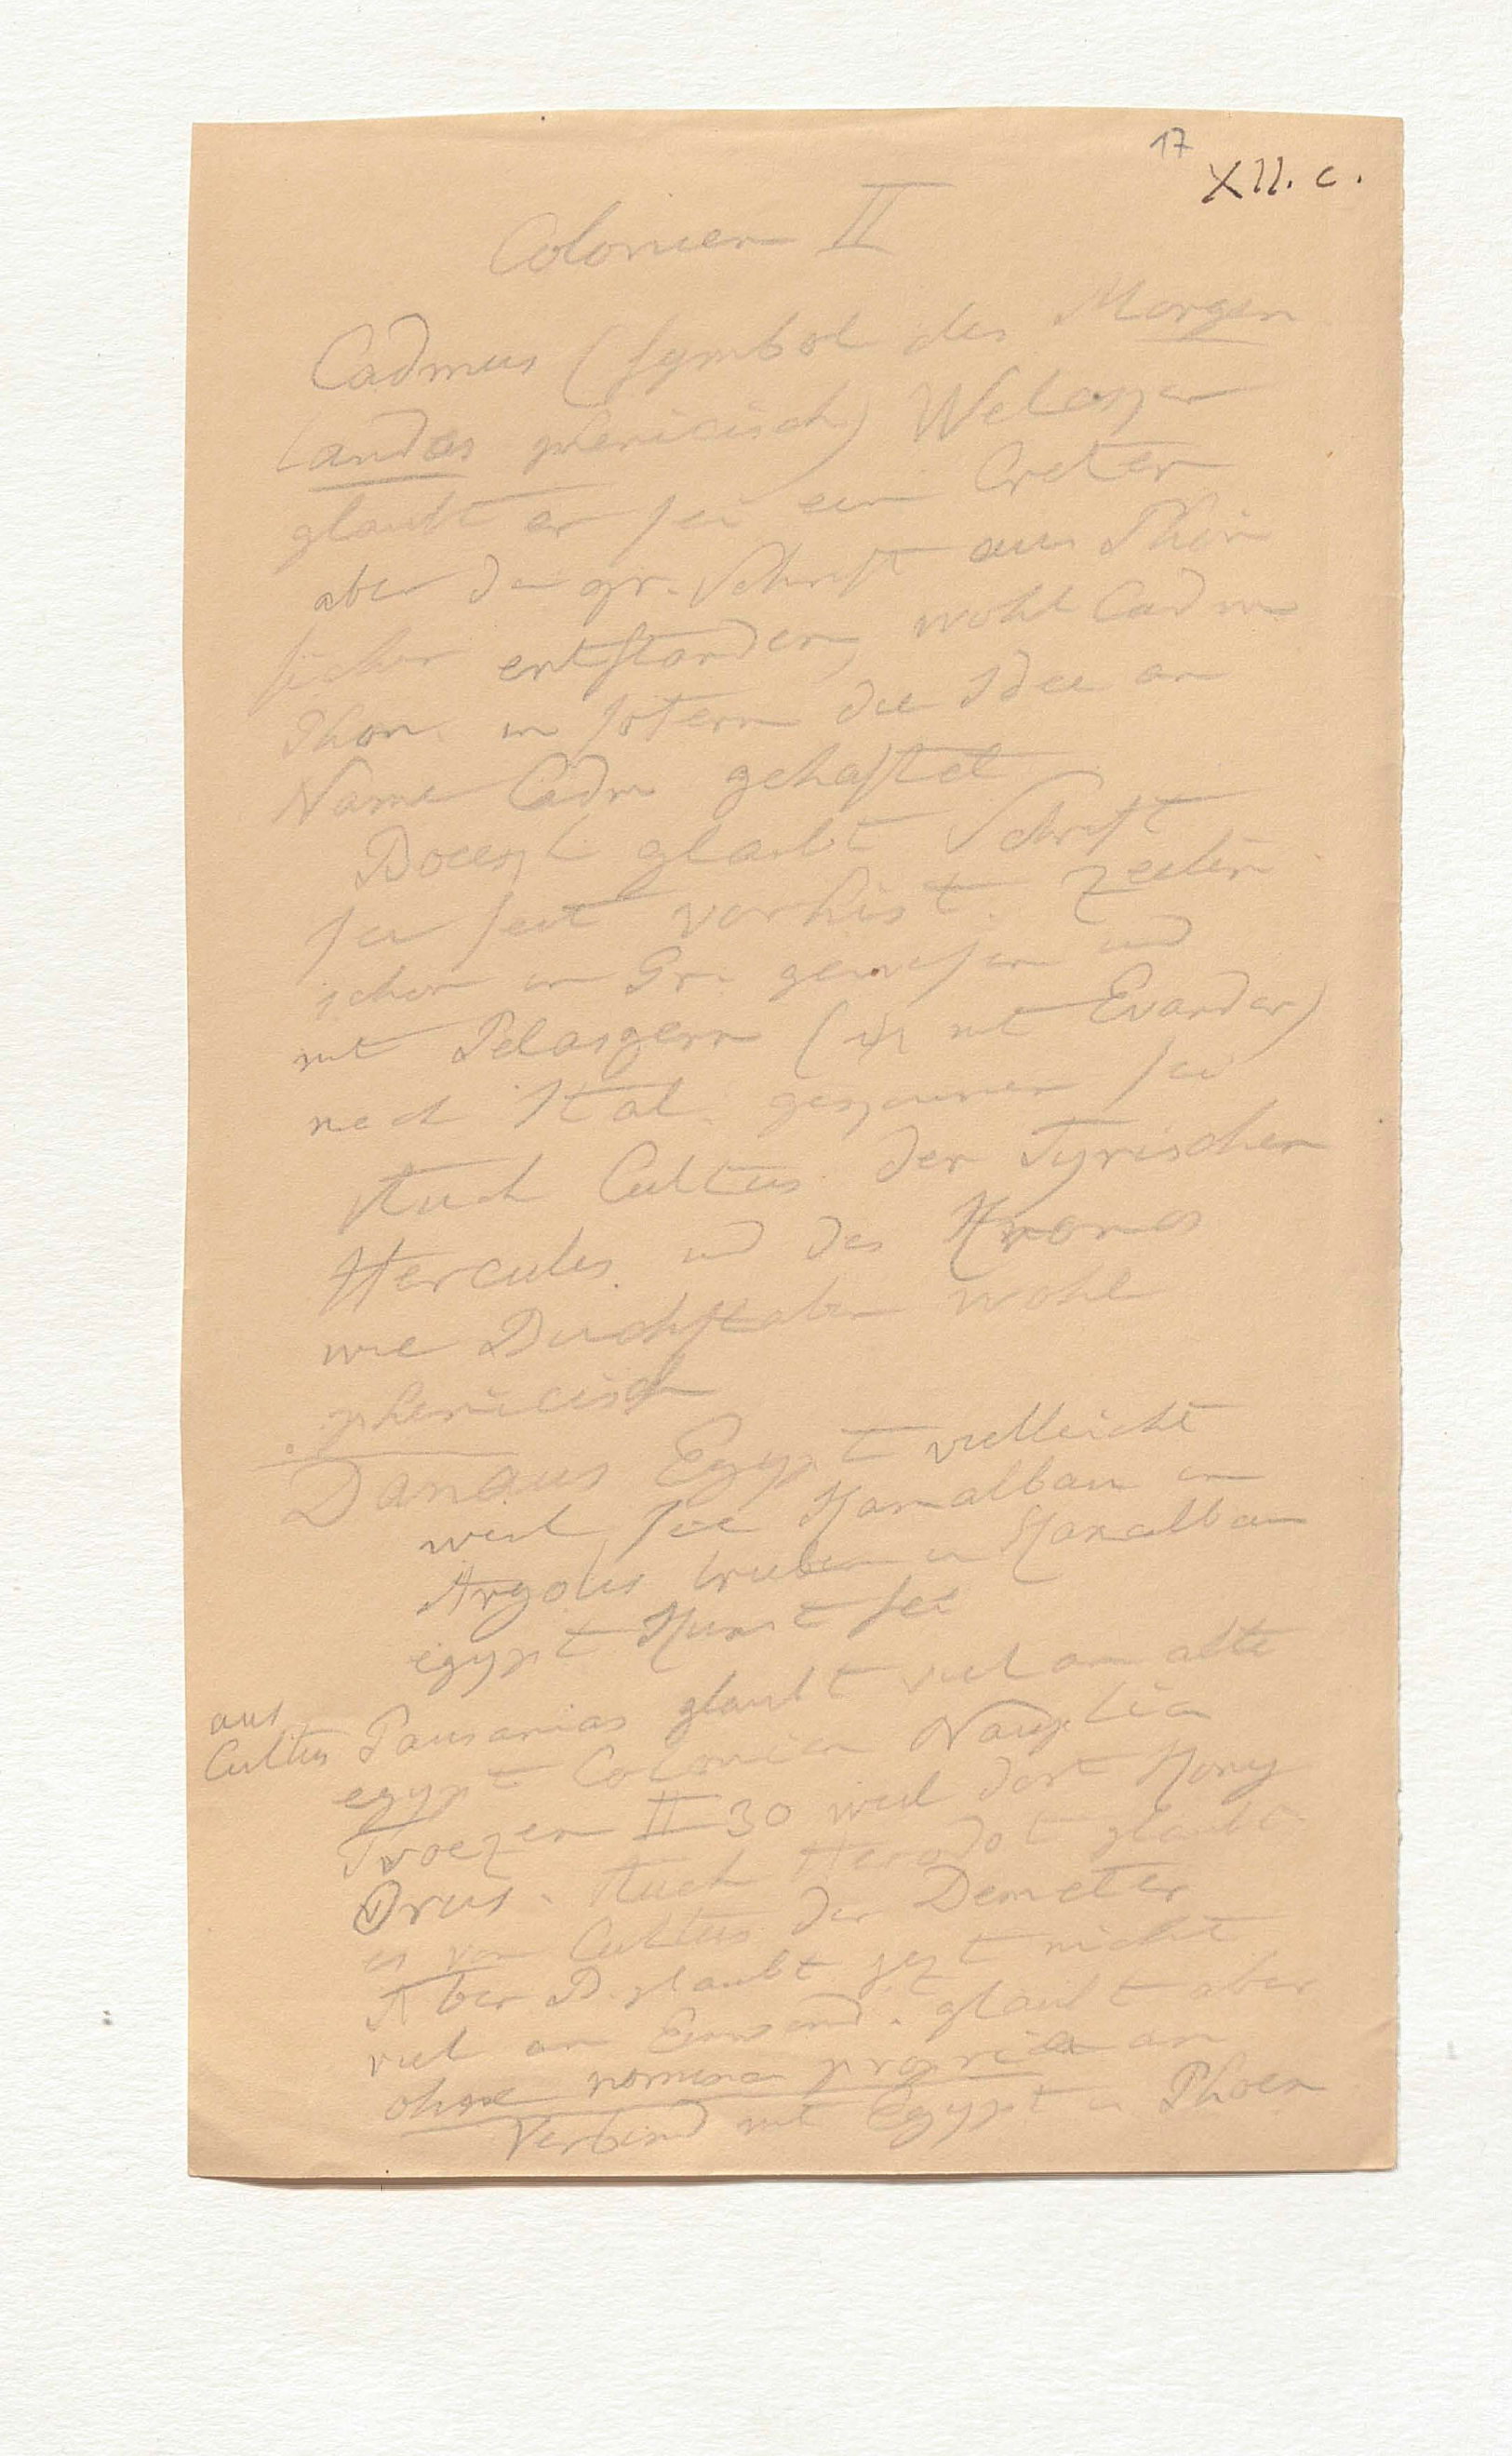 17
XII. c.
Colonien II
Cadmus (Symbol des Morgen
Landes phenicisch) Welcker
glaubt er sei ein Creter
aber da gr. Schrift aus Phön
sicher entstanden, wohl Cadm
Phon. in sofern die Idee an
Name Cadm gehaftet
Boeckh glaubt Schrift
sei seit vorhist. Zeiten
schon in Gr. gewesen und
mit Pelasgern (mit Evander)
nach Ital. gekommen sei
Auch Cultus der Tyrischen
Hercules und des Kronos
wie Buchstaben wohl
phenicisch
Danaus Egypt vielleicht
weil sie Kanalbau in
Argolis trieben u Kanalbau
egypt Kunst sei
aus
Cultus Pausanias glaubt viel an alte
egypt Colonien Nauplia
Troezen II 30 weil dort König
Orus. Auch Herodot glaubt
es von Cultus der Demeter
Aber B. glaubt jezt nicht
viel an Einwand. glaubt aber
ohne nomina propria an
Verbind mit Egypt u Phoen